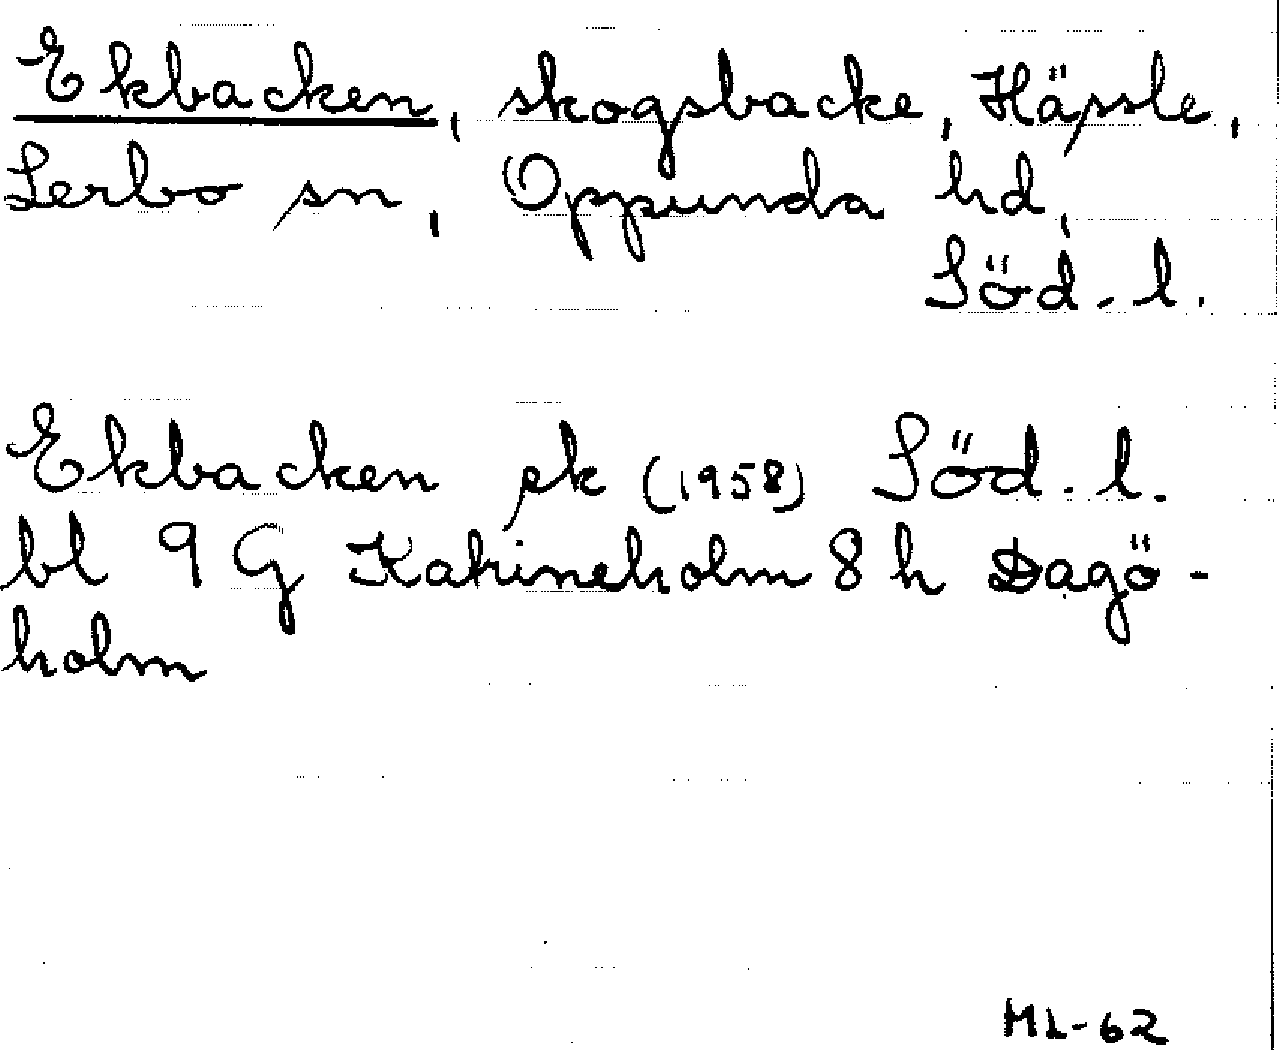 Ekbacken, skogsbacke, Hässle,
Lerbo sn, Oppunda hd,
Söd. l.
Ekbacken ek (1958) Söd. l.
bl 9 G Katrineholm 8 h Dagö-
holm
ML-62